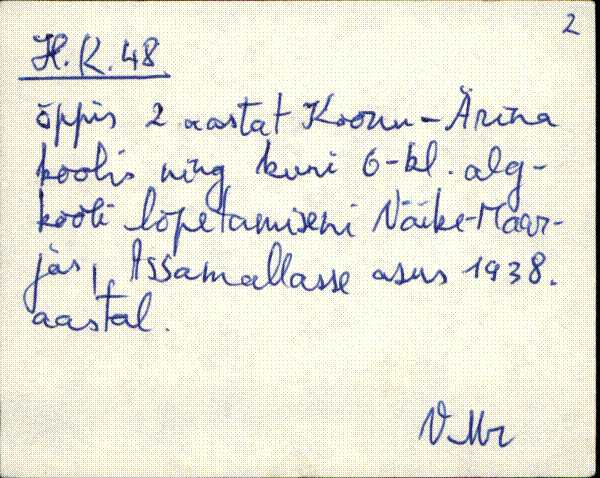 2
H.K.48
õppis 2 aastat Koonu-Ärina
koolis ning kuni 6-kl. alg-
kooli lõpetamiseni Väike-Maar-
jas, Assamallasse asus 1938.
aastal.